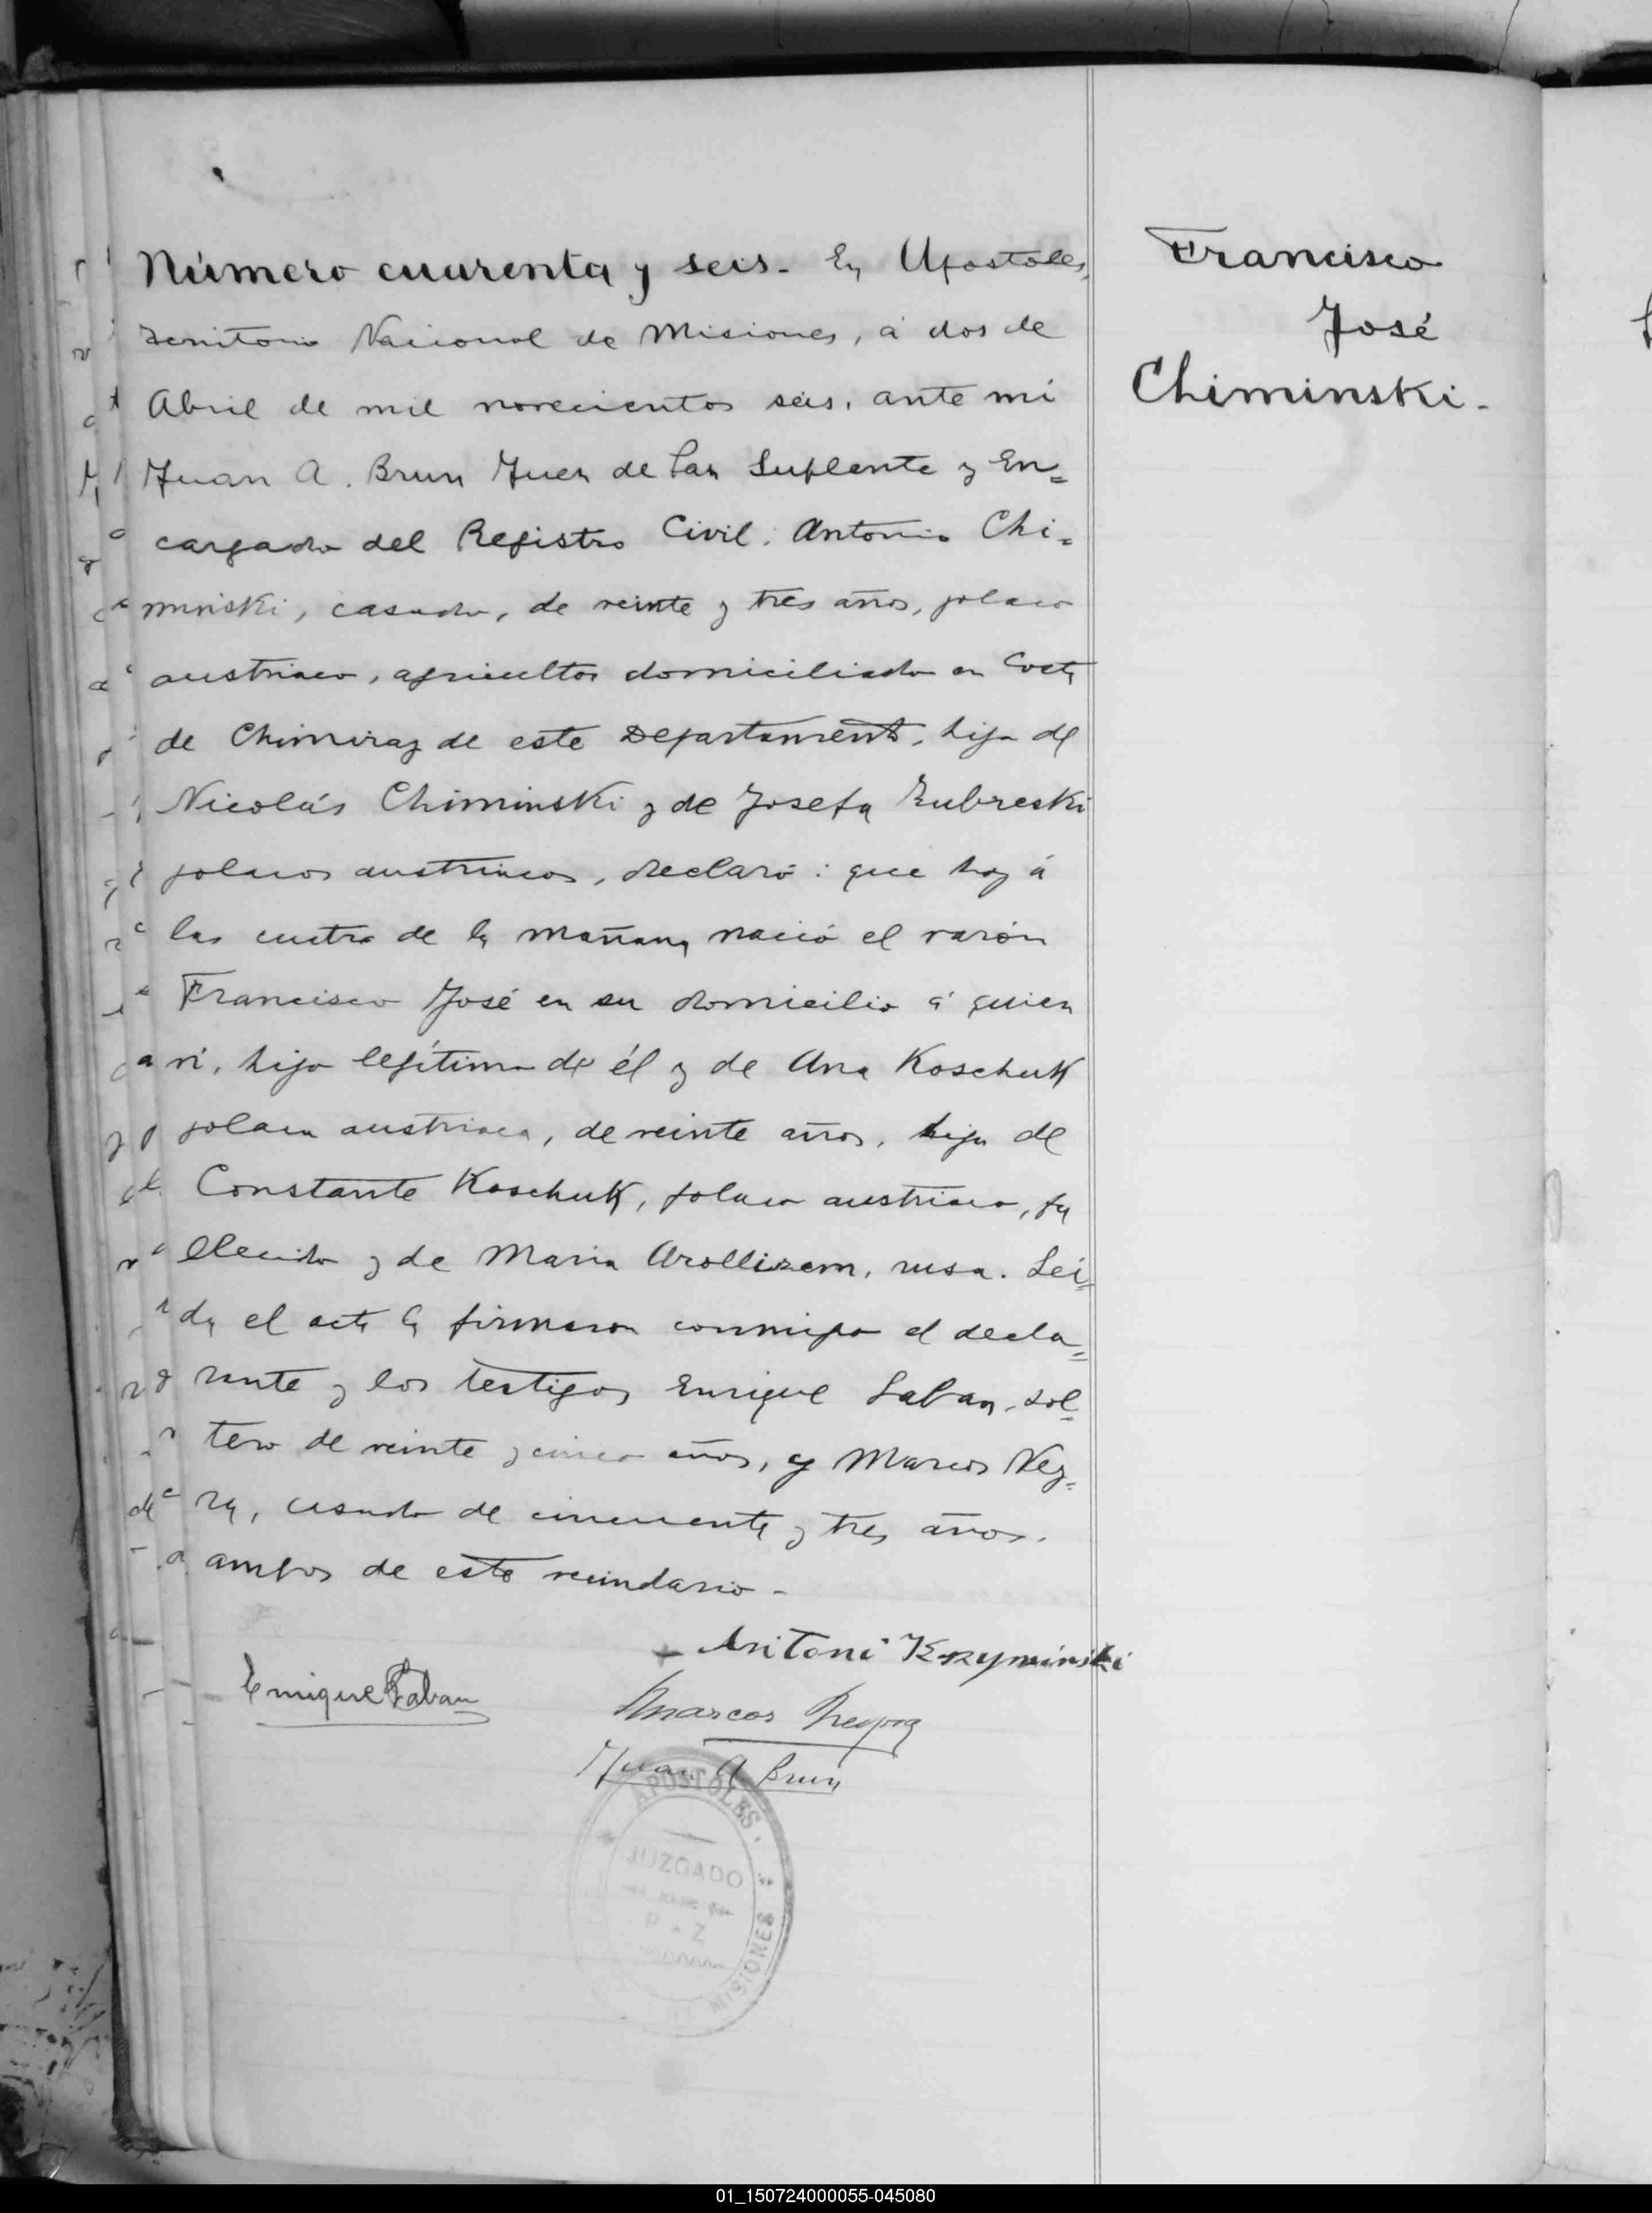 Número cuarenta y seis. En Apostoles,
Territorio Nacional de Misiones, á dos de
Abril de mil novecientos seis, ante mi
Juan A. Brun Juez de Paz Suplente y En=
cargado del Registro Civil: Antonio Chi=
minski, casado, de veinte y tres años, polaco
austriaco, agricultor domiciliado en Costa
de Chimiray de este Departamento, hijo de
Nicolás Chiminski y de Josefa Zubreski
polacos austriacos, declaró: que hoy á
las cuatro de la mañana nació el varón
Francisco José en su domicilio á quien
vi, hijo legítimo de él y de Ana Koschuk
polaca austriaca, de veinte años, hija de
Constante Koschuk, polaco austriaco, fa
llecido y de Maria, rusa. Leí=
da el acta la firmaron conmigo el decla=
rante y los testigos Enrique Laban, sol=
tero de veinte y cinco años, y Marcos Ney=
ra, casado de cincuenta y tres años,
ambos de este vecindario -
Antoni Krzyminski
Enrique Laban
Marcos Neyra
Juan A Brun
APOSTOLES
JUZGADO
MISIONES
Francisco
José
Chiminski.
01_150724000055-045080